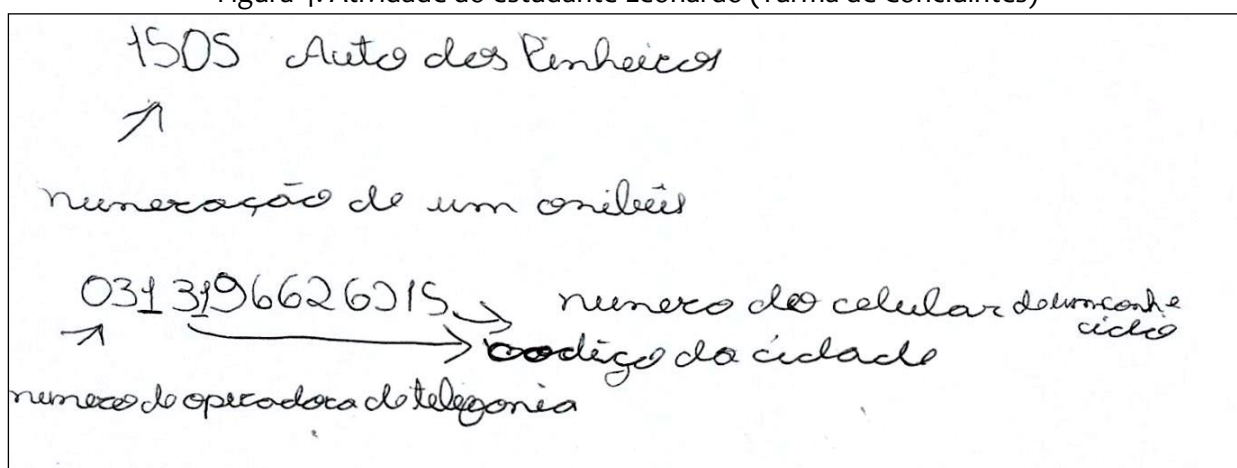 Figura 4: Atividade do estudante Leonardo (Turma de Concluintes)
1505 Auto dos Pinheiros
numeração de um onibûs
0313196626915 numero do celular de um conhe
cido
codigo da cidade
numero de operadora de telegonia